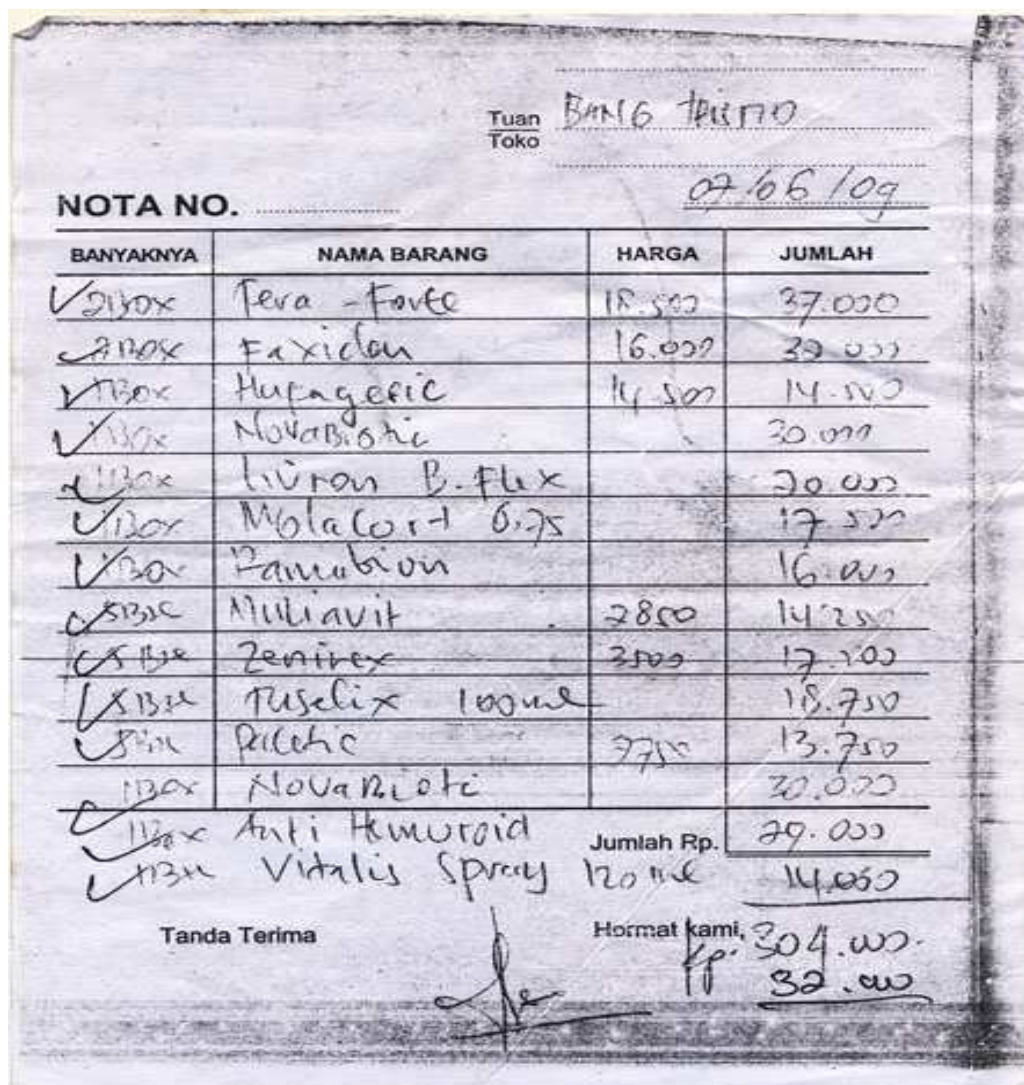 Tuan BANG
Toko
07/06/09
NOTA NO.
BANYAKNYA NAMA BARANG HARGA JUMLAH
2 Box Fera - Forte 18.500 37.000
2 Box Faxiden 16.000 32.000
1 Box Hufagesic 14.500 14.500
1 Box NovaBiotic 30.000
1 Box Livron B. Flex 20.000
1 Box Molacort 0,75 17.500
1 Box 16.000
5 Multiavit 2850 14.250
5 Zenirex 3500 17.500
5 Tuselix 100 ml 18.750
5 2750 13.750
1 Box NovaBiotic 30.000
1 Box Anti Hemoroid Jumlah Rp. 29.000
Vitalis Spray 120 ml 14.050
Tanda Terima Hormat kami,
Rp. 304.000.
32.000